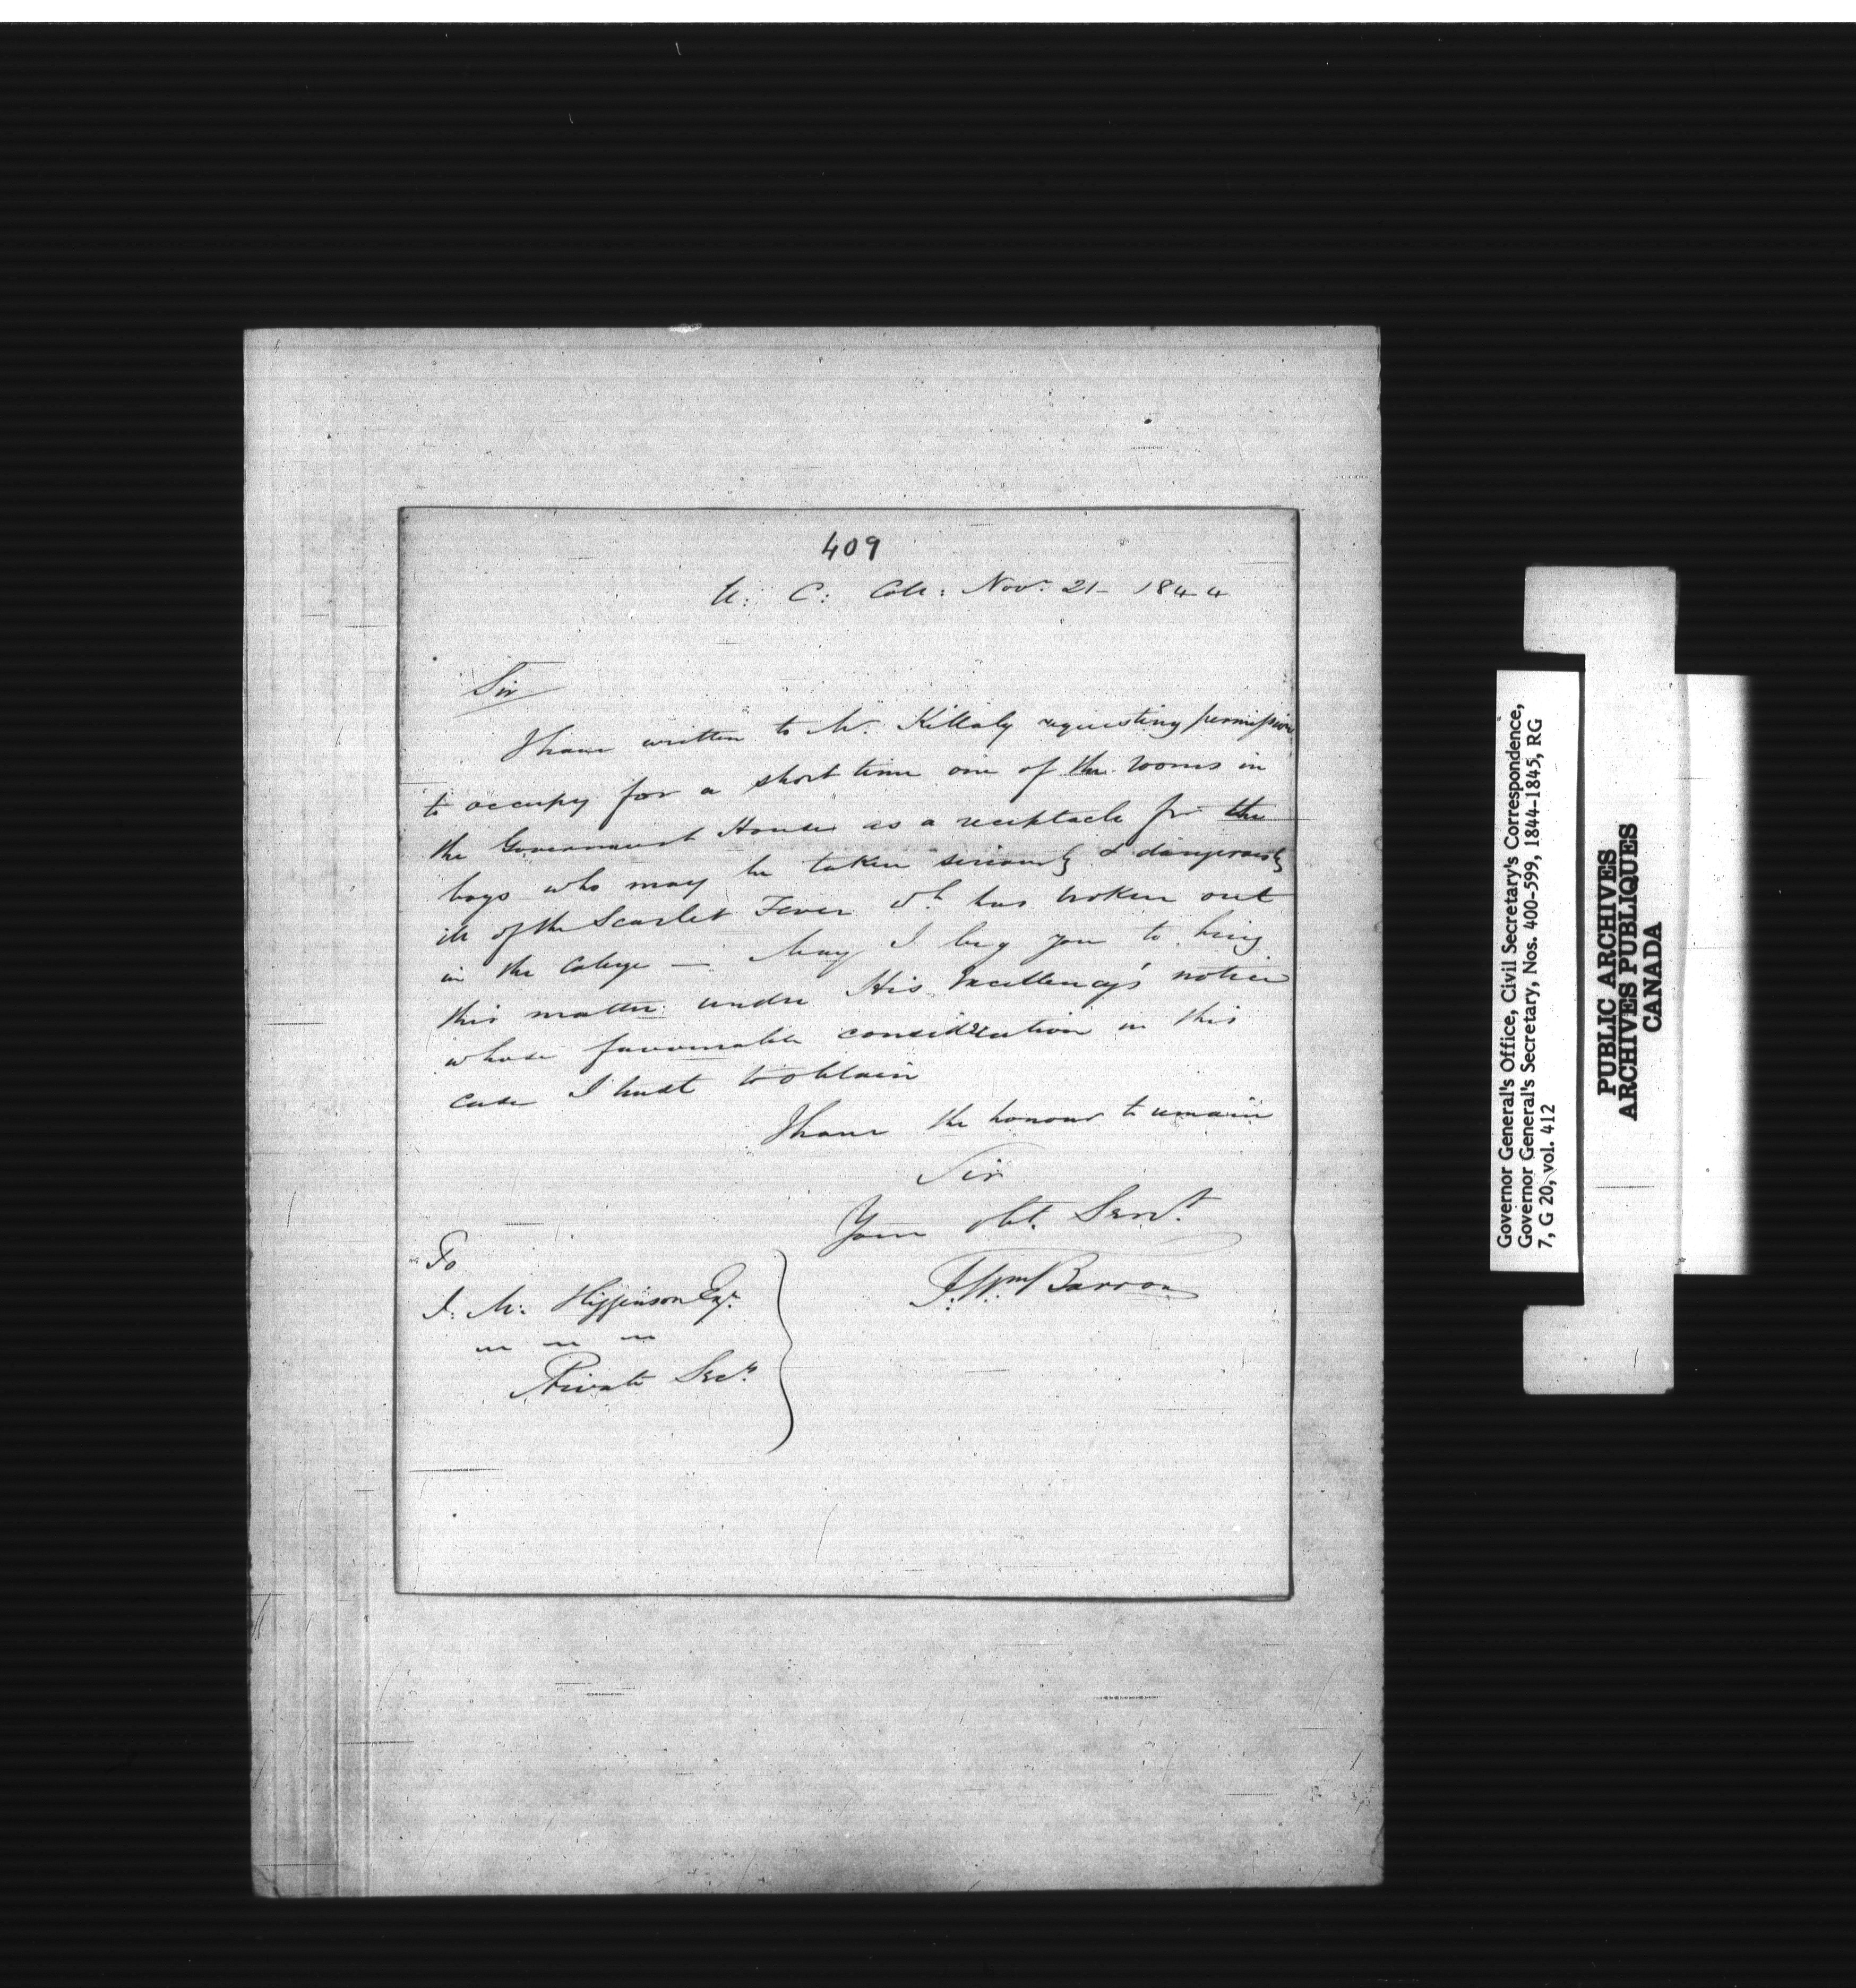 409
U: C: Coll: Novr. 21 - 1844
Sir
I have written to Mr. Killaly requesting permission
to occupy for a short time one of the rooms in
the Government House as a receptacle for the
boys who may be taken seriously & dangerously
ill of the Scarlet Fever wh. has broken out
in the College — May I beg you to bring
this matter under His Excellency's notice
whose favourable consideration in this
case I trust to obtain
I have the honour to remain
Sir
Your obt. Servt.
F. Wm Barron
To
J. M. Higginson Esqr.
Private Secry.
Governor General's Office, Civil Secretary's Correspondence,
Governor General's Secretary, Nos. 400-599, 1844-1845, RG
7, G 20, vol. 412
PUBLIC ARCHIVES
ARCHIVES PUBLIQUES
CANADA